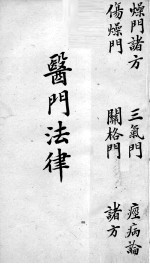 燥門諸方
三氣門
痙病論
傷燥門
關格門
諸方
醫門法律